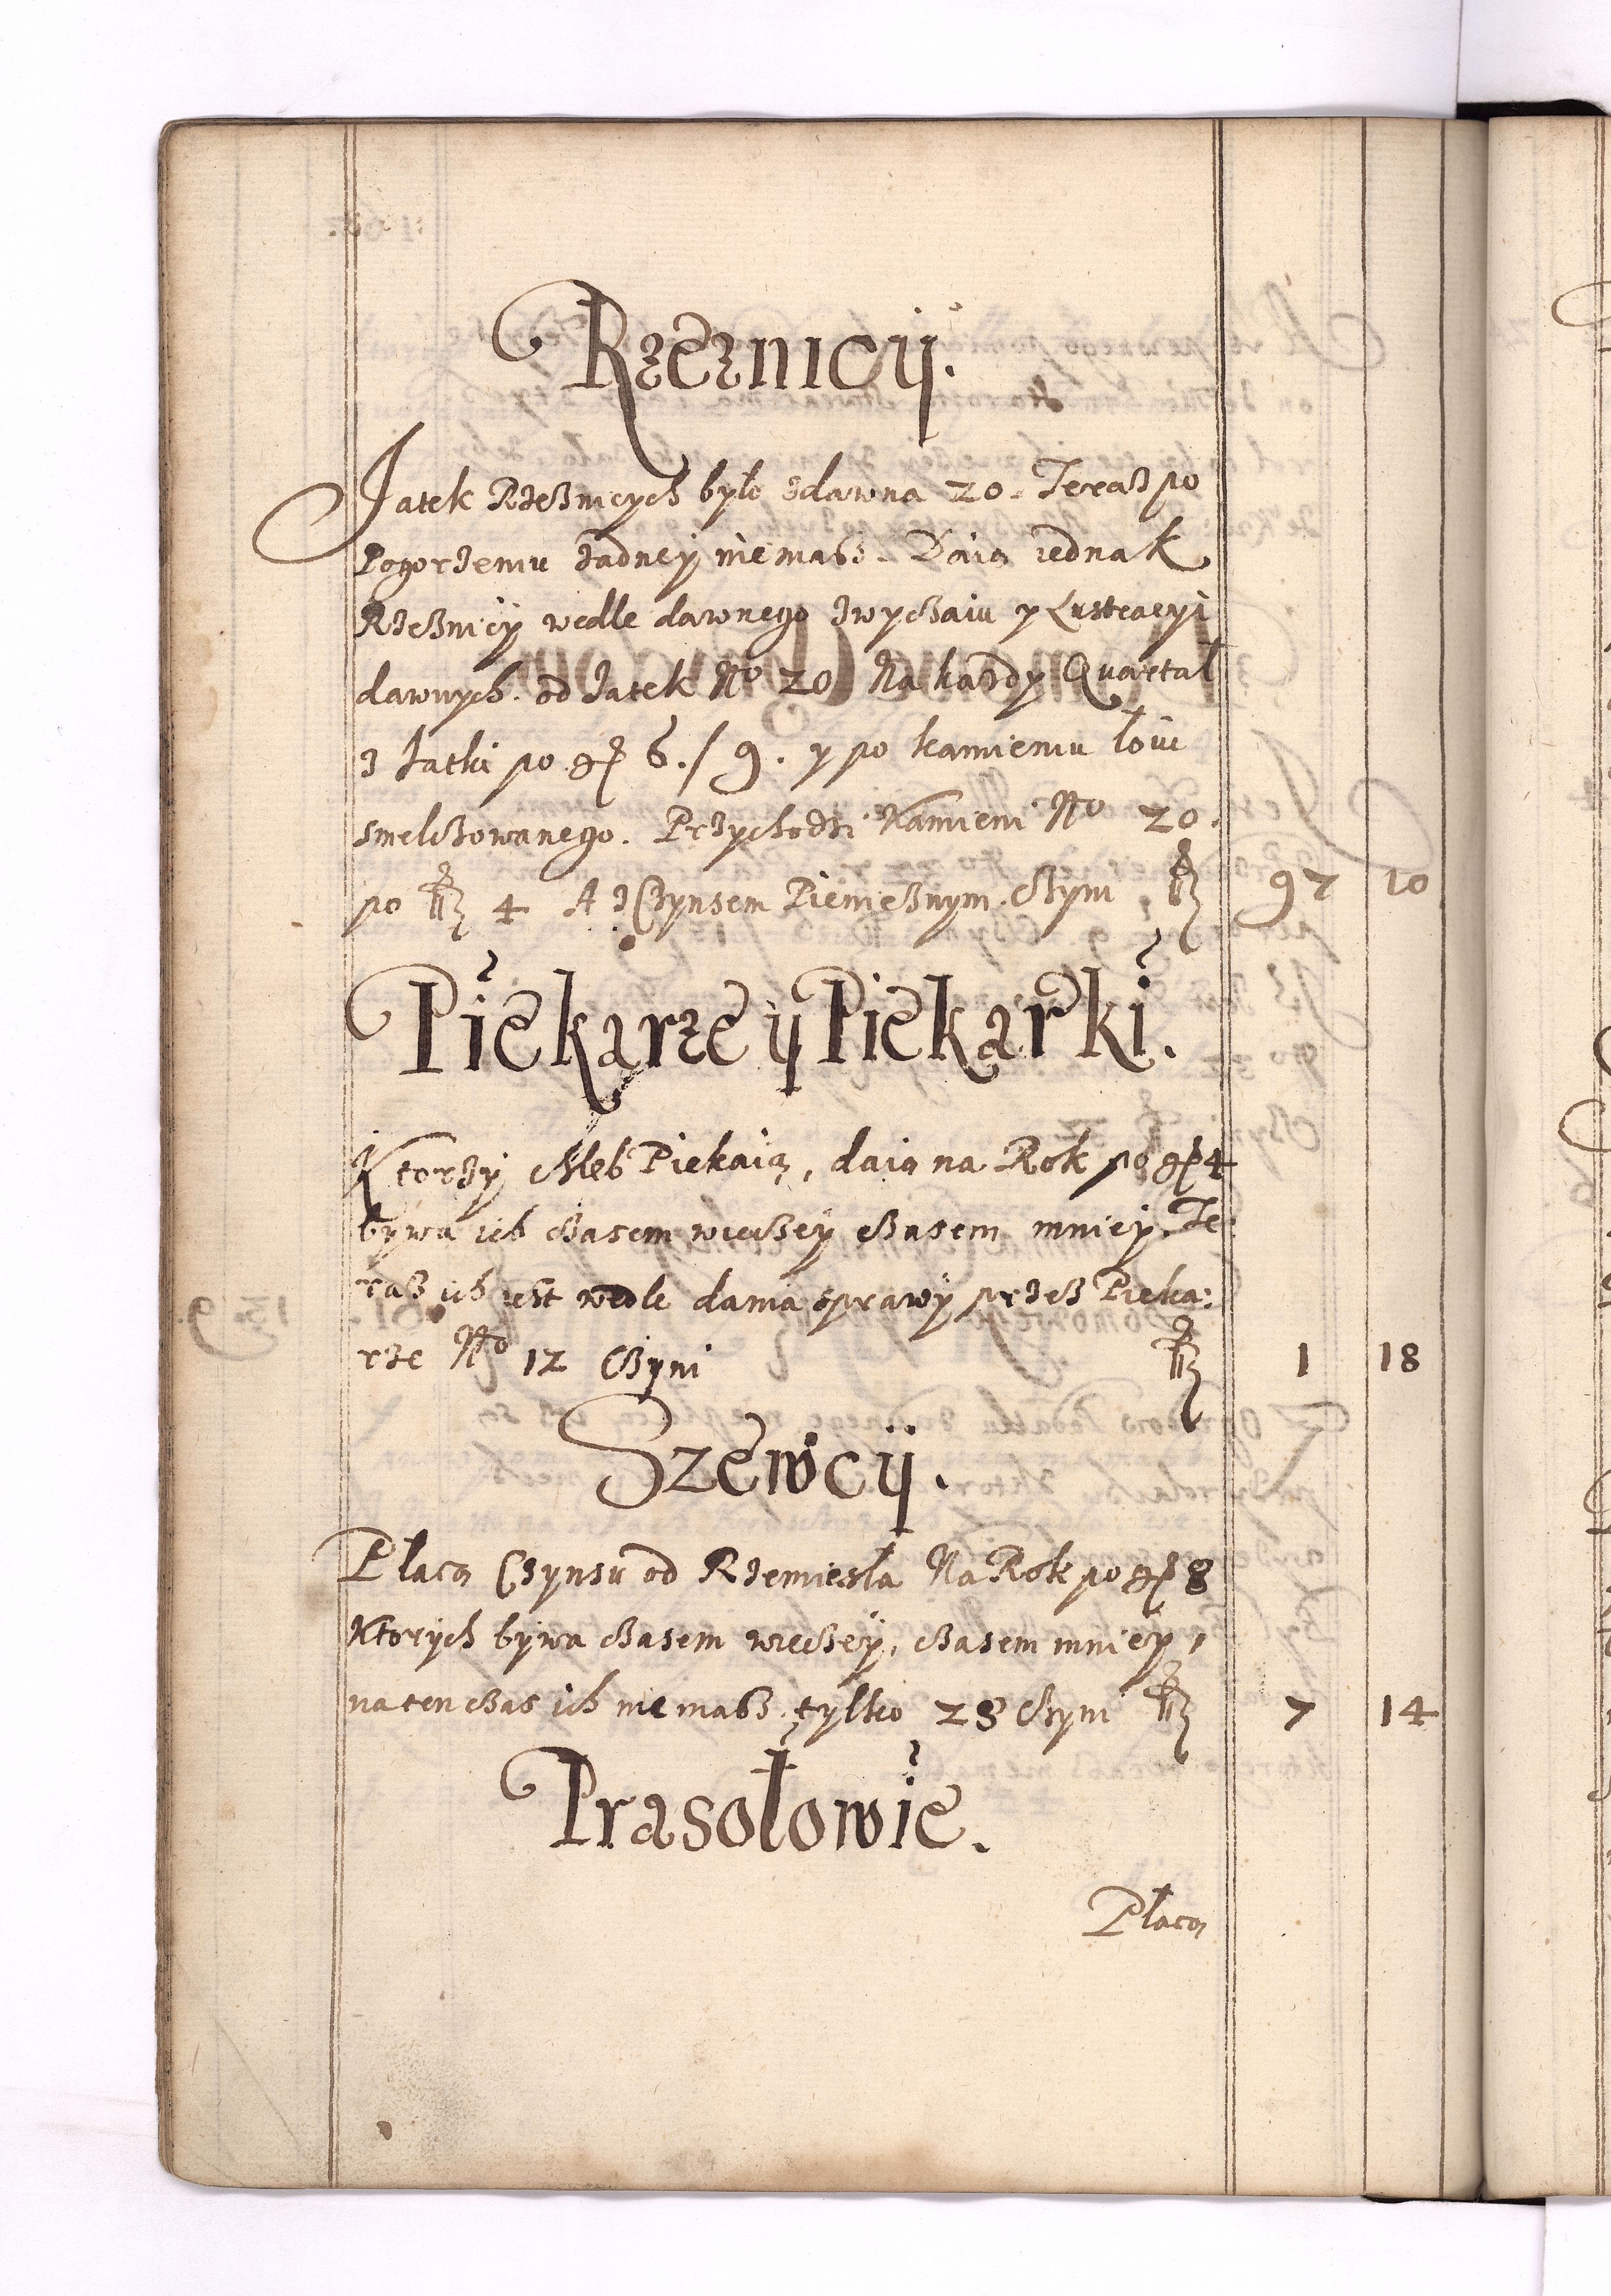 Rzeznicÿ.
Jatek Rzeznicych było zdawna 20. Teraz po
Pogorzeniu żadneÿ niemasz. Daią iednak
Rzeznicÿ wedle dawnego zwyczaiu y Lustracyi
dawnych. od Jatek No 20 Na kazdy Quartał
z Jatki po gr 6./9. y po kamieniu łoiu
smelczowanego. Przychodzi Kamieni No 20.
po fl 4 A z Czynsem Pienieznym. Czyni fl 97 10
Piekarze ÿ Piekarki.
Ktorzÿ chleb Piekaią, daią na Rok po gr 4
bywa ich czasem wieceÿ czasem mnieÿ. Te:
raz ich iest wedle dania sprawÿ przez Pieka:
rze No 12 Czyni fl 1 18
Szewcÿ.
Płacą Czynsu od Rzemiesła Na Rok po gr 8
Ktorych bywa czasem wieceÿ, czasem mnieÿ,
na ten czas ich niemasz tylko 28 Czyni fl 7 14
Prasołowie.
Płacą